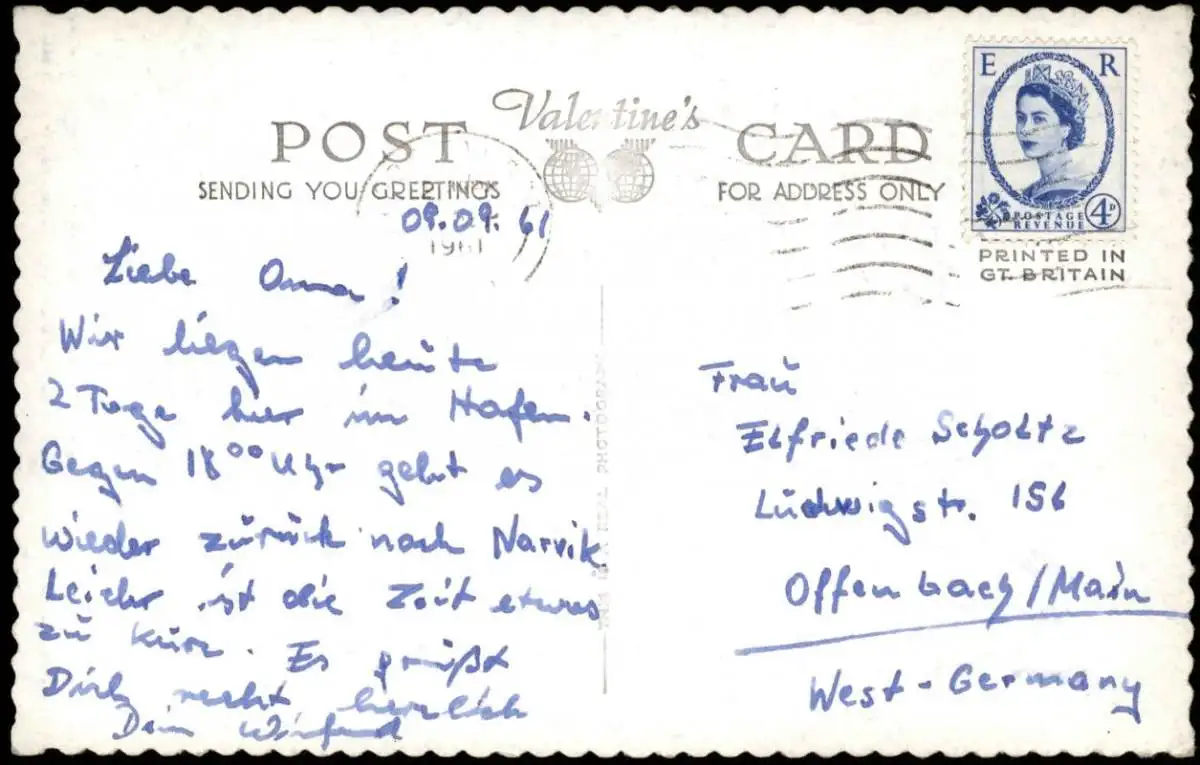 Valentine's
POST CARD
SENDING YOU GREETINGS
FOR ADDRESS ONLY
E R
POSTAGE
REVENUE
4D
PRINTED IN
GT. BRITAIN
1961
09.09.61
Liebe Oma!
Wir liegen heute
2 Tage hier im Hafen.
Gegen 18 00 Uhr geht es
wieder zurück nach Narvik
Leider ist die Zeit etwas
zu kurz. Es grüßt
Dich recht herzlich
Dein Winfried
REAL PHOTOGRAPH
Frau
Elfriede Scholtz
Ludwigstr. 156
Offenbach/Main
West-Germany